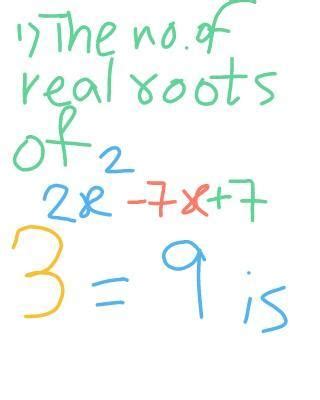 1) The no. of
real roots
of
3^{2x^2-7x+7} = 9 is